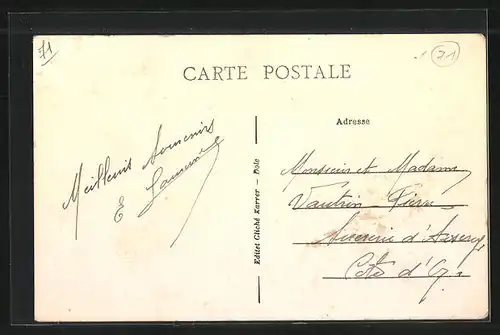 71
71
CARTE POSTALE
Adresse
Meilleurs Souvenirs
E
Editet Cliché Karrer - Dole
Monsieur et Madame
Vautrin Pierre
d'
Côte d'Or